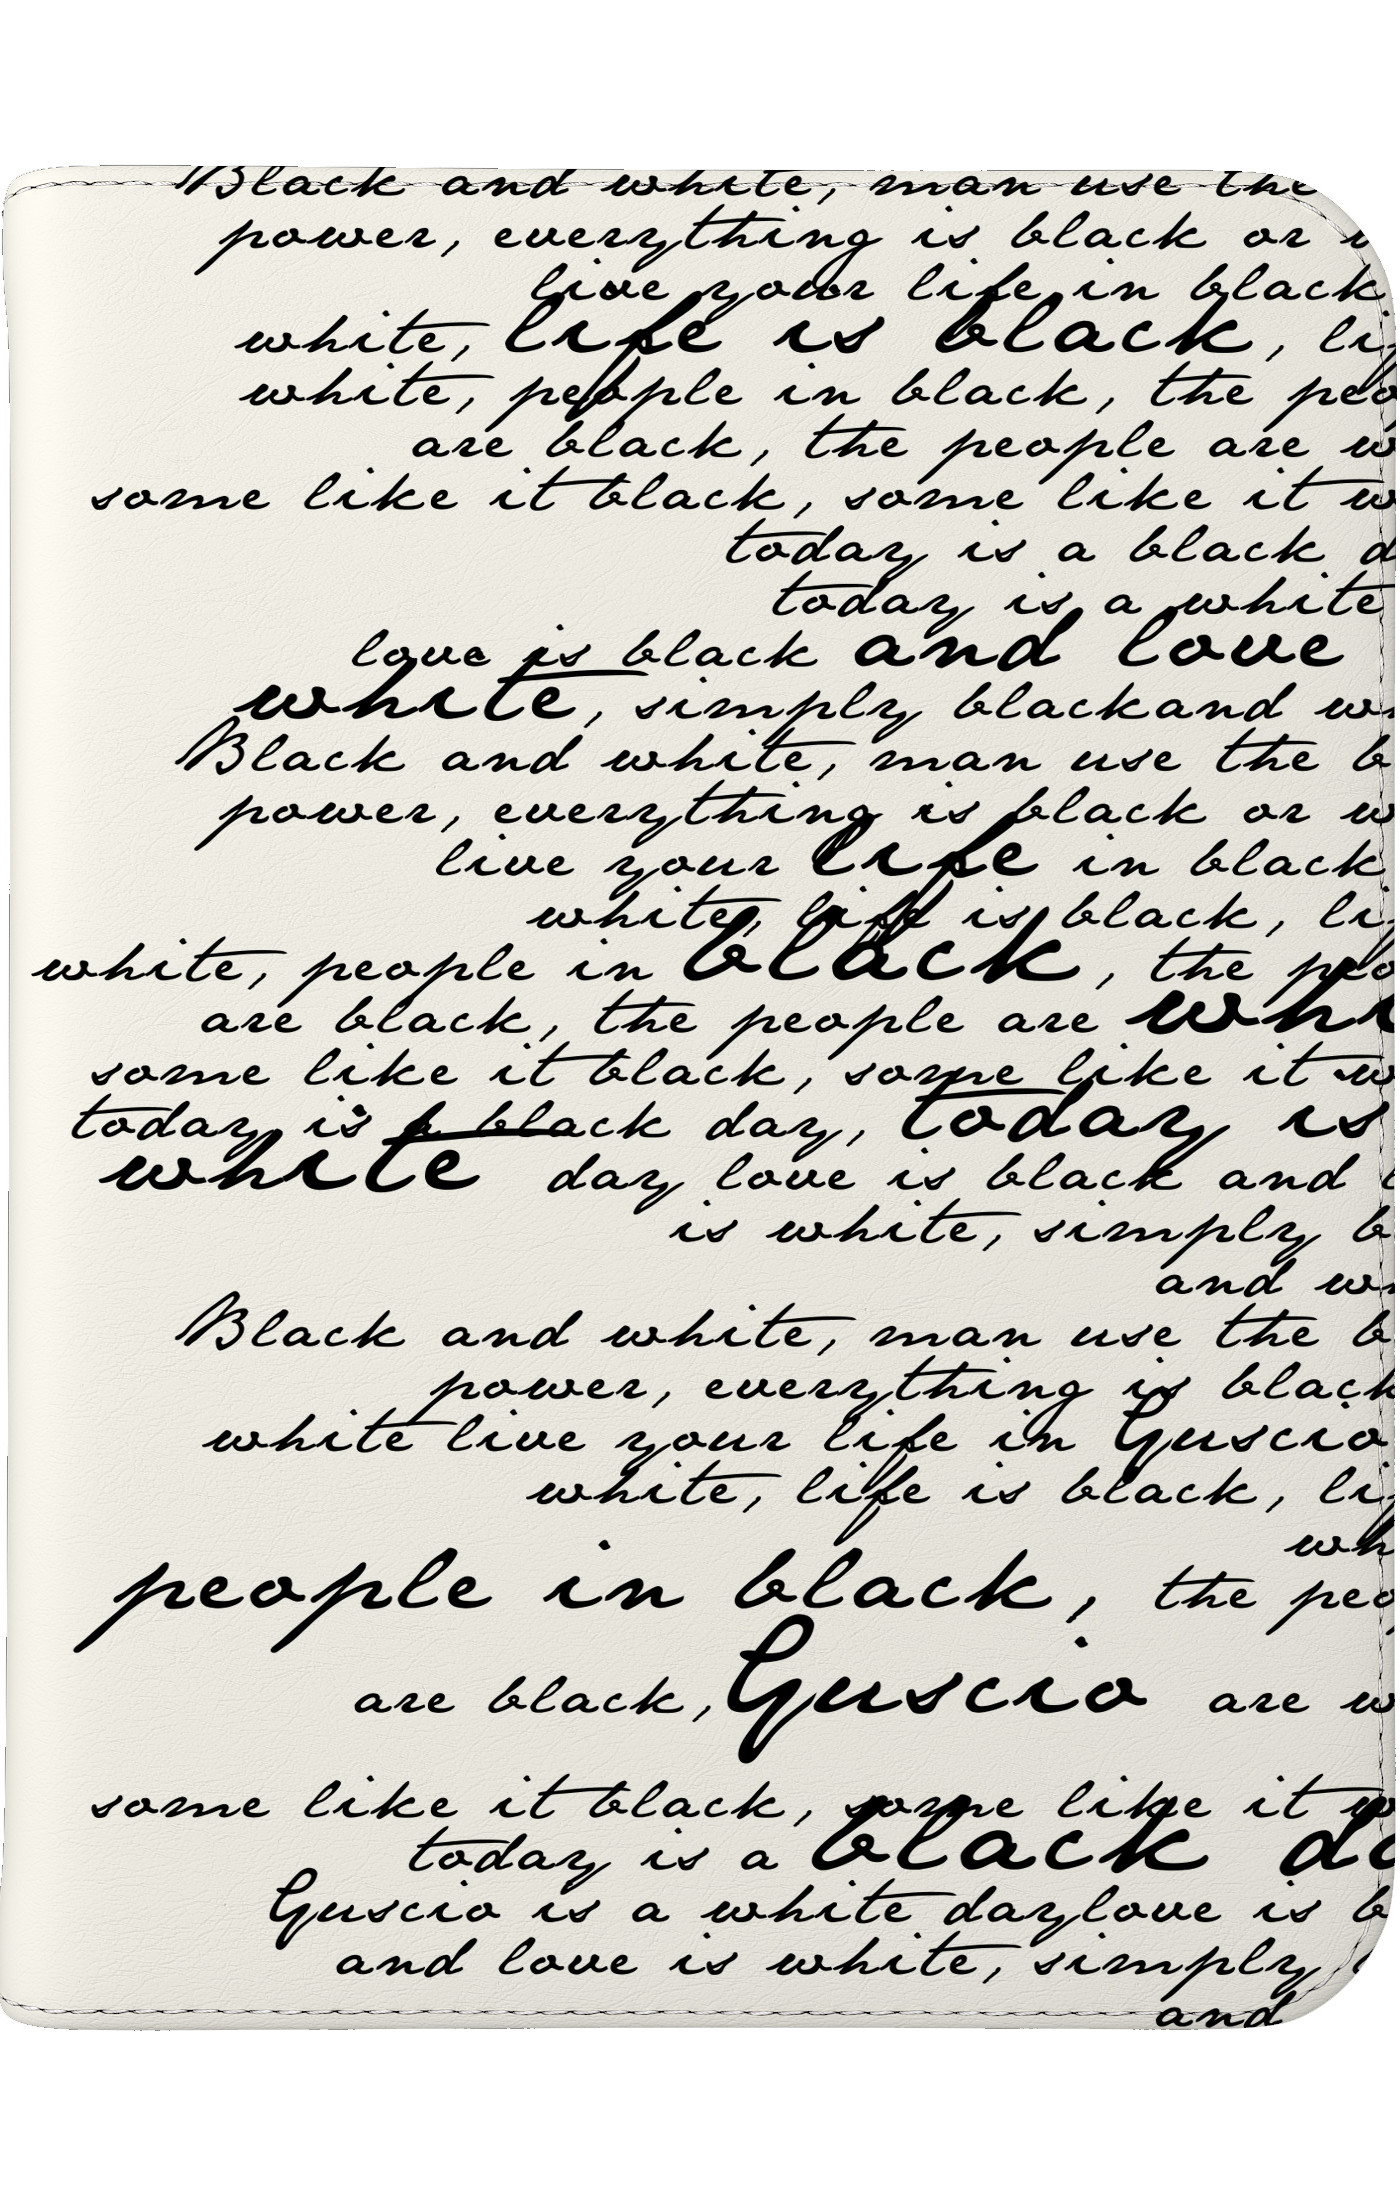 Black and white, man use the
power, everything is black or
live your life in black
white, life is black, li
white, people in black, the peo
are black, the people are w
some like it black, some like it w
today is a black d
today is a white
love is black and love
white, simply blackand w
Black and white, man use the b
power, everything is black or w
live your life in black
white, life is black, li
white, people in black, the peo
are black, the people are whi
some like it black, some like it w
today is a black day, today is
white day love is black and
is white, simply b
and w
Black and white, man use the b
power, everything is black
white live your life in Guscio
white, life is black, li
wh
people in black, the peo
are black, Guscio are w
some like it black, some like it w
today is a black da
Guscio is a white daylove is b
and love is white, simply
and